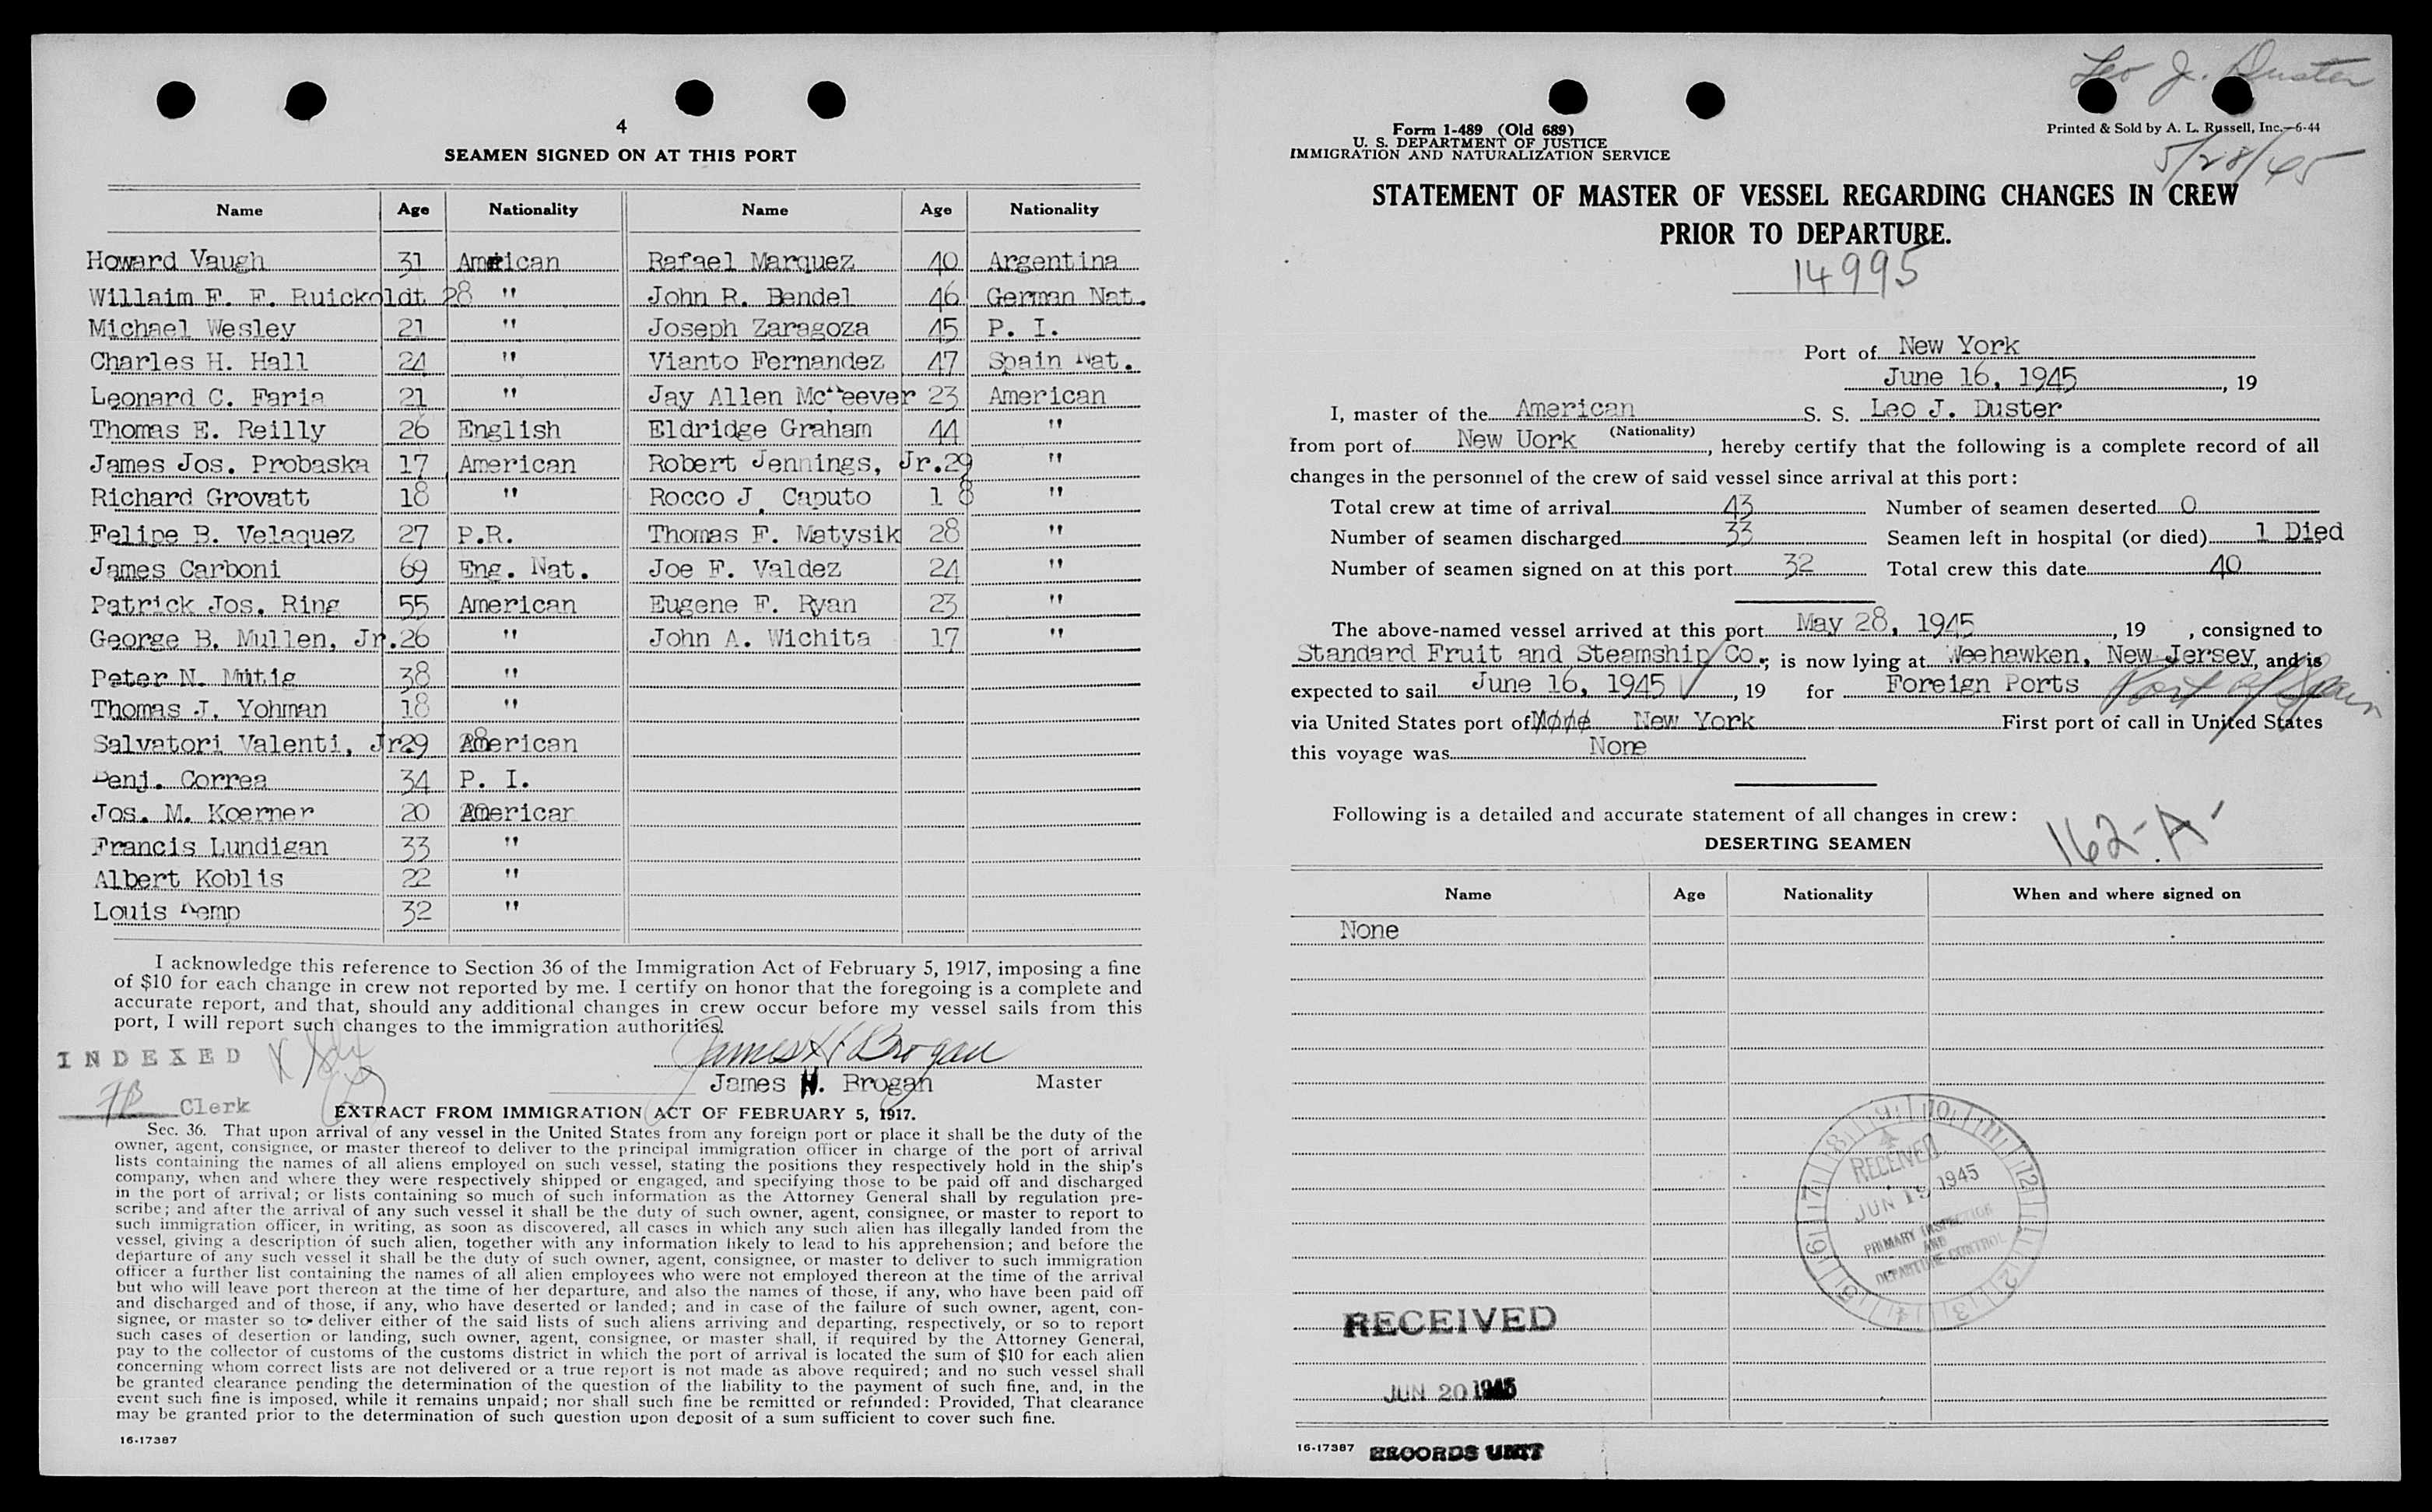 4
SEAMEN SIGNED ON AT THIS PORT
Name Age Nationality Name Age Nationality
Howard Vaugh 31 American Rafael Marquez 40 Argentina
Willaim F. F. Ruickoldt 28 " John R. Bendel 46 German Nat.
Michael Wesley 21 " Joseph Zaragoza 45 P. I.
Charles H. Hall 24 " Vianto Fernandez 47 Spain Nat.
Leonard C. Faria 21 " Jay Allen McKeever 23 American
Thomas E. Reilly 26 English Eldridge Graham 44 "
James Jos. Probaska 17 American Robert Jennings, Jr. 29 "
Richard Grovatt 18 " Rocco J. Caputo 1 8 "
Felipe B. Velaquez 27 P.R. Thomas F. Matysik 28 "
James Carboni 69 Eng. Nat. Joe F. Valdez 24 "
Patrick Jos. Ring 55 American Eugene F. Ryan 23 "
George B. Mullen, Jr. 26 " John A. Wichita 17 "
Peter N. Mutig 38 "
Thomas J. Yohman 18 "
Salvatori Valenti, Jr. 29 American
Benj. Correa 34 P. I.
Jos. M. Koerner 20 American
Francis Lundigan 33 "
Albert Koblis 22 "
Louis Kemp 32 "
I acknowledge this reference to Section 36 of the Immigration Act of February 5, 1917, imposing a fine
of $10 for each change in crew not reported by me. I certify on honor that the foregoing is a complete and
accurate report, and that, should any additional changes in crew occur before my vessel sails from this
port, I will report such changes to the immigration authorities.
INDEXED
James H Brogan
James H. Brogan Master
FB Clerk
EXTRACT FROM IMMIGRATION ACT OF FEBRUARY 5, 1917.
Sec. 36. That upon arrival of any vessel in the United States from any foreign port or place it shall be the duty of the
owner, agent, consignee, or master thereof to deliver to the principal immigration officer in charge of the port of arrival
lists containing the names of all aliens employed on such vessel, stating the positions they respectively hold in the ship's
company, when and where they were respectively shipped or engaged, and specifying those to be paid off and discharged
in the port of arrival; or lists containing so much of such information as the Attorney General shall by regulation pre-
scribe; and after the arrival of any such vessel it shall be the duty of such owner, agent, consignee, or master to report to
such immigration officer, in writing, as soon as discovered, all cases in which any such alien has illegally landed from the
vessel, giving a description of such alien, together with any information likely to lead to his apprehension; and before the
departure of any such vessel it shall be the duty of such owner, agent, consignee, or master to deliver to such immigration
officer a further list containing the names of all alien employees who were not employed thereon at the time of the arrival
but who will leave port thereon at the time of her departure, and also the names of those, if any, who have been paid off
and discharged and of those, if any, who have deserted or landed; and in case of the failure of such owner, agent, con-
signee, or master so to deliver either of the said lists of such aliens arriving and departing, respectively, or so to report
such cases of desertion or landing, such owner, agent, consignee, or master shall, if required by the Attorney General,
pay to the collector of customs of the customs district in which the port of arrival is located the sum of $10 for each alien
concerning whom correct lists are not delivered or a true report is not made as above required; and no such vessel shall
be granted clearance pending the determination of the question of the liability to the payment of such fine, and, in the
event such fine is imposed, while it remains unpaid; nor shall such fine be remitted or refunded: Provided, That clearance
may be granted prior to the determination of such question upon deposit of a sum sufficient to cover such fine.
16-17387
Leo J. Duster
Form 1-489 (Old 689)
U. S. DEPARTMENT OF JUSTICE
IMMIGRATION AND NATURALIZATION SERVICE
Printed & Sold by A. L. Russell, Inc.—6-44
5/28/45
STATEMENT OF MASTER OF VESSEL REGARDING CHANGES IN CREW
PRIOR TO DEPARTURE.
14995
Port of New York
June 16, 1945, 19
I, master of the American S. S. Leo J. Duster
(Nationality)
from port of New Uork, hereby certify that the following is a complete record of all
changes in the personnel of the crew of said vessel since arrival at this port:
Total crew at time of arrival 43 Number of seamen deserted 0
Number of seamen discharged 33 Seamen left in hospital (or died) 1 Died
Number of seamen signed on at this port 32 Total crew this date 40
The above-named vessel arrived at this port May 28, 1945, 19 , consigned to
Standard Fruit and Steamship Co.; is now lying at Weehawken, New Jersey, and is
expected to sail June 16, 1945, 19 for Foreign Ports Port of Spain
via United States port of None New York First port of call in United States
this voyage was None
Following is a detailed and accurate statement of all changes in crew:
162-A-
DESERTING SEAMEN
Name Age Nationality When and where signed on
None
9 10 11 12 1 2 3 4 5 6 7 8
RECEIVED
JUN 1945
PRIMARY INSPECTION
AND
DEPARTURE CONTROL
RECEIVED
JUN 20 1945
16-17387 RECORDS UNIT